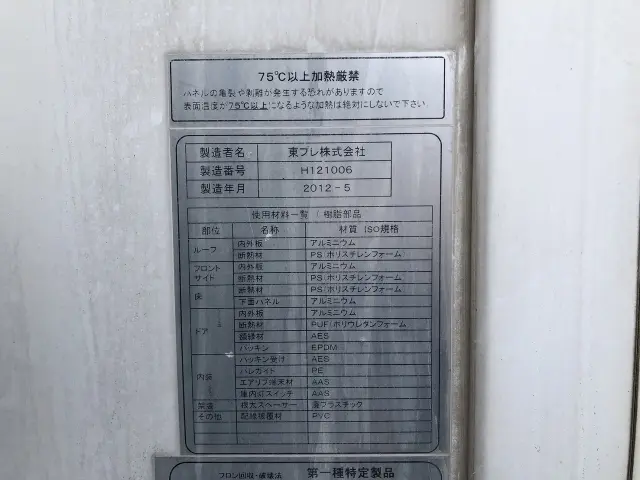 75℃以上加熱厳禁
パネルの亀裂や剥離が発生する恐れがありますので
表面温度が75℃以上になるような加熱は絶対にしないで下さい.
製造者名 東プレ株式会社
製造番号 H121006
製造年月 2012-5
使用材料一覧 / 樹脂部品
部位 名称 材質 ISO規格
ルーフ 内外板 アルミニウム
断熱材 PS:ポリスチレンフォーム
フロント サイド 内外板 アルミニウム
断熱材 PS:ポリスチレンフォーム
床 断熱材 PS:ポリスチレンフォーム
下面パネル アルミニウム
ドア 内外板 アルミニウム
断熱材 PUF:ポリウレタンフォーム
AES
パッキン EPDM
内装 パッキン受け AES
PE
エアリブ端末材 AAS
庫内灯スイッチ AAS
架造 根太スペーサー 混プラスチック
その他 配線被覆材 PVC
フロン回収・破壊法 第一種特定製品